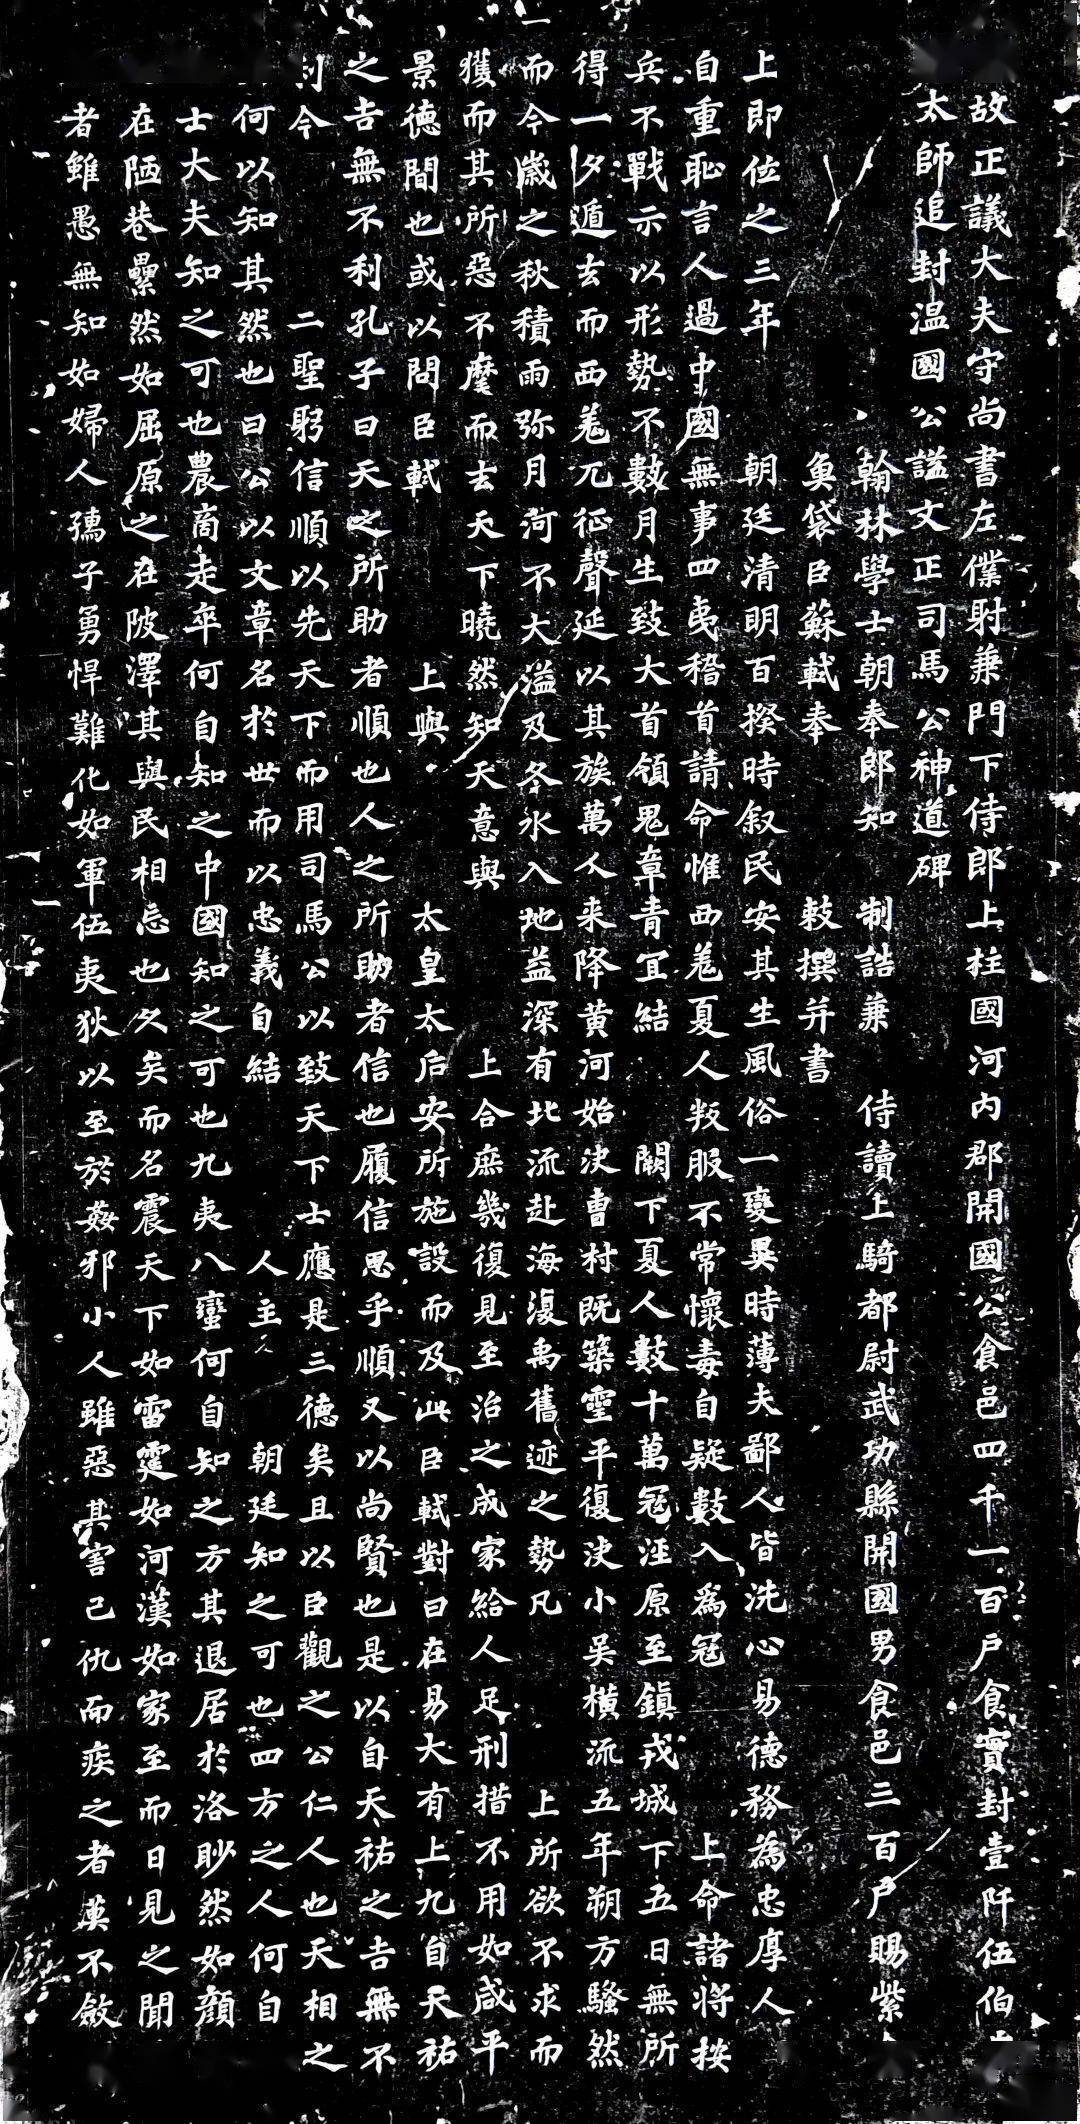 故正議大夫守尚書左僕射兼門下侍郎上柱國河內郡開國公食邑四千一百戶食實封壹阡伍伯
太師追封温國公謚文正司馬公神道碑
翰林學士朝奉郎知 制誥兼 侍讀上騎都尉武功縣開國男食邑三百戶賜紫
魚袋臣蘇軾奉 敕撰并書
上即位之三年 朝廷清明百揆時叙民安其生風俗一變異時薄夫鄙人皆洗心易德務為忠厚人人
自重恥言人過中國無事四夷稽首請命惟西羗夏人叛服不常懷毒自疑數入為寇 上命諸將按
兵不戰示以形勢不數月生致大首領鬼章青宜結 闕下夏人數十萬寇涇原至鎮戎城下五日無所
得一夕遁去而西羗兀征聲延以其族萬人来降黃河始決曹村既築靈平復決小吳橫流五年朔方騷然
而今歲之秋積雨弥月河不大溢及冬水入地益深有北流赴海復禹舊迹之勢凡 上所欲不求而
獲而其所惡不麾而去天下曉然知天意與 上合庶幾復見至治之成家給人足刑措不用如咸平
景德間也或以問臣軾 上與 太皇太后安所施設而及此臣軾對曰在易大有上九自天祐
之吉無不利孔子曰天之所助者順也人之所助者信也履信思乎順又以尚賢也是以自天祐之吉無不
利今 二聖躬信順以先天下而用司馬公以致天下士應是三德矣且以臣觀之公仁人也天相之
何以知其然也曰公以文章名於世而以忠義自結 人主 朝廷知之可也四方之人何自
士大夫知之可也農商走卒何自知之中國知之可也九夷八蠻何自知之方其退居於洛眇然如顏
在陋巷纍然如屈原之在陂澤其與民相忘也久矣而名震天下如雷霆如河漢如家至而日見之聞
者雖愚無知如婦人孺子勇悍難化如軍伍夷狄以至於姦邪小人雖惡其害己仇而疾之者莫不斂